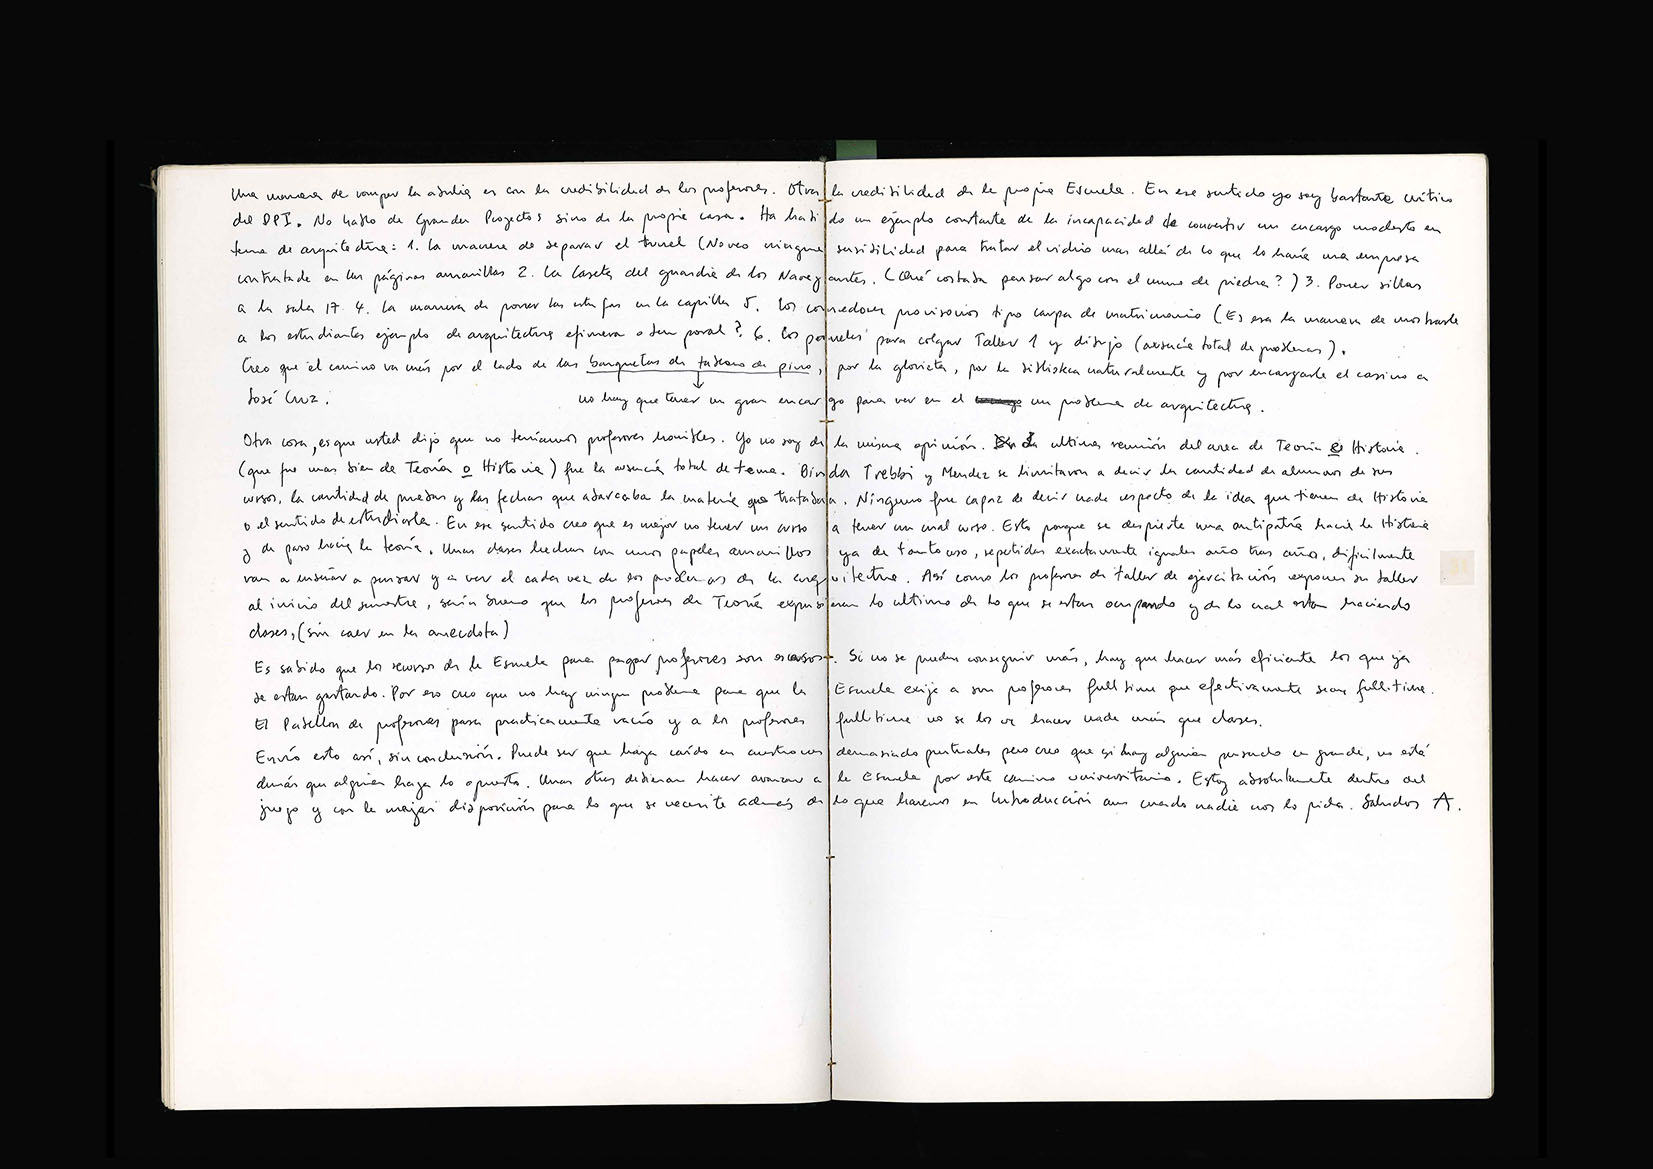 Una manera de romper la abulia es con la credibilidad de los profesores. Otra, la credibilidad de la propia Escuela. En ese sentido yo soy bastante crítico
del DPI. No hablo de Grandes Proyectos sino de la propia casa. Ha habido un ejemplo constante de la incapacidad de convertir un encargo modesto en
tema de arquitectura: 1. la manera de separar el tunel (No veo ninguna sensibilidad para tratar el vidrio mas allá de lo que lo haría una empresa
contratada en las páginas amarillas 2. La Caseta del guardia de los Navegantes. (Qué costaba pensar algo con el muro de piedra?) 3. Poner sillas
a la sala 17 4. La manera de poner las estufas en la capilla 5. Los comedores provisorios tipo carpa de matrimonio (Es esa la manera de mostrarle
a los estudiantes ejemplo de arquitectura efímera o temporal? 6. Los paneles para colgar Taller 1 y dibujo (ausencia total de problemas).
Creo que el camino va más por el lado de las banquetas de tablones de pino, por la glorieta, por la biblioteca naturalmente y por encargarle el casino a
José Cruz.
no hay que tener un gran encargo para ver en el un problema de arquitectura.
Otra cosa, es que usted dijo que no teníamos profesores horribles. Yo no soy de la misma opinión. La ultima reunión del area de Teoría e Historia.
(que fue mas bien de Teoría o Historia) fue la ausencia total de tema. Trebbi y Mendez se limitaron a decir la cantidad de alumnos de sus
cursos, la cantidad de pruebas y las fechas que abarcaba la materia que trataban. Ninguno fue capaz de decir nada respecto de la idea que tienen de Historia
o el sentido de estudiarla. En ese sentido creo que es mejor no tener un curso a tener un mal curso. Esto porque se despierta una antipatía hacia la Historia
y de paso hacia la teoría. Unas clases hechas con unos papeles amarillos ya de tanto uso, repetidas exactamente iguales año tras años, dificilmente
van a enseñar a pensar y a ver el cada vez de los problemas de la arquitectura. Así como los profesores de taller de ejercitación exponen su taller
al inicio del semestre, sería bueno que los profesores de Teoría expusieran lo ultimo de lo que se estan ocupando y de lo cual estan haciendo
clases, (sin caer en la anecdota)
Es sabido que los recursos de la Escuela para pagar profesores son escasos. Si no se pueden conseguir más, hay que hacer más eficiente los que ya
se estan gastando. Por eso creo que no hay ningun problema para que la Escuela exija a sus profesores full time que efectivamente sean full-time.
El Pabellon de profesores pasa practicamente vacío y a los profesores full time no se los ve hacer nada más que clases.
Envío esto así, sin conclusión. Puede ser que haya caído en cuestiones demasiado puntuales pero creo que si hay alguien pensando en grande, no está
demás que alguien haga lo opuesto. Unas otras debieran hacer avanzar a la Escuela por este camino universitario. Estoy absolutamente dentro del
juego y con la mejor disposición para lo que se necesite además de lo que haremos en Introducción aun cuando nadie nos lo pida. Saludos A.